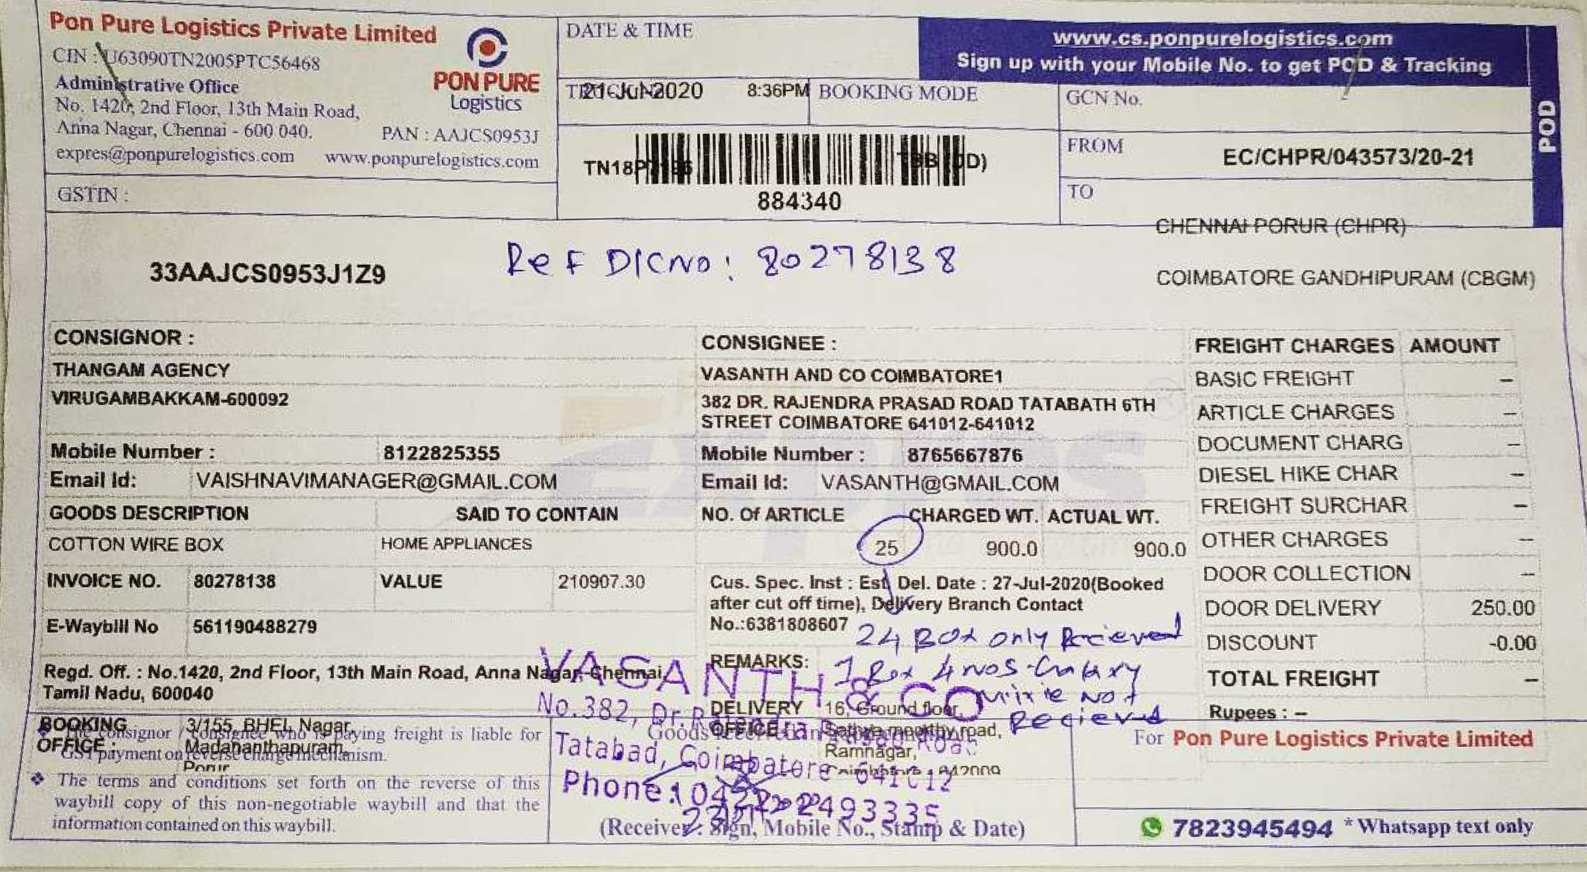 Pon Pure Logistics Private Limited
CIN : U63090TN2005PTC56468
Administrative Office
No. 1420, 2nd Floor, 13th Main Road,
Anna Nagar, Chennai - 600 040.
PAN : AAJCS0953J
expres@ponpurelogistics.com www.ponpurelogistics.com
PON PURE
Logistics
GSTIN :
33AAJCS0953J1Z9
DATE & TIME
21-Jun-2020 8:36PM
BOOKING MODE
884340
www.cs.ponpurelogistics.com
Sign up with your Mobile No. to get POD & Tracking
POD
GCN No.
FROM
EC/CHPR/043573/20-21
TO
CHENNAI PORUR (CHPR)
COIMBATORE GANDHIPURAM (CBGM)
Ref DICNO: 80278138
CONSIGNOR :
THANGAM AGENCY
VIRUGAMBAKKAM-600092
Mobile Number : 8122825355
Email Id: VAISHNAVIMANAGER@GMAIL.COM
CONSIGNEE :
VASANTH AND CO COIMBATORE1
382 DR. RAJENDRA PRASAD ROAD TATABATH 6TH
STREET COIMBATORE 641012-641012
Mobile Number : 8765667876
Email Id: VASANTH@GMAIL.COM
GOODS DESCRIPTION SAID TO CONTAIN NO. Of ARTICLE CHARGED WT. ACTUAL WT.
COTTON WIRE BOX HOME APPLIANCES 25 900.0 900.0
INVOICE NO. 80278138 VALUE 210907.30
E-Waybill No 561190488279
Cus. Spec. Inst : Est Del. Date : 27-Jul-2020(Booked
after cut off time), Delivery Branch Contact
No.:6381808607
24 Box only Recieved
1 Box 4 nos
Not
Recieved
REMARKS:
FREIGHT CHARGES AMOUNT
BASIC FREIGHT –
ARTICLE CHARGES –
DOCUMENT CHARG –
DIESEL HIKE CHAR –
FREIGHT SURCHAR –
OTHER CHARGES –
DOOR COLLECTION –
DOOR DELIVERY 250.00
DISCOUNT -0.00
TOTAL FREIGHT –
Rupees : –
Regd. Off. : No.1420, 2nd Floor, 13th Main Road, Anna Nagar, Chennai,
Tamil Nadu, 600040
BOOKING
OFFICE :
3/155, BHEL Nagar,
Madananthapuram,
Porur
DELIVERY
OFFICE
16, Ground floor,
Sathya moorthy road,
Ramnagar,
VASANTH & CO
No.382, Dr.
Tatabad, Coimbatore 641012
Phone: 0422-2493335
consignor / consignee who is paying freight is liable for
GST payment on reverse charge mechanism.
The terms and conditions set forth on the reverse of this
waybill copy of this non-negotiable waybill and that the
information contained on this waybill.
(Receiver Sign, Mobile No., Stamp & Date)
For Pon Pure Logistics Private Limited
7823945494 * Whatsapp text only